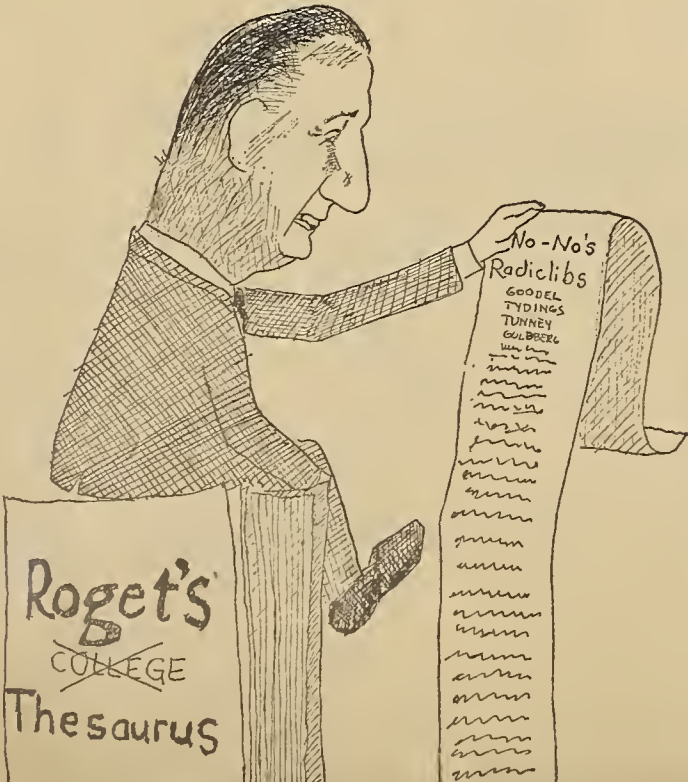 No-No's
Radiclibs
GOODEL
TYDINGS
TUNNEY
GOLDBERG
Roget's
COLLEGE
Thesaurus